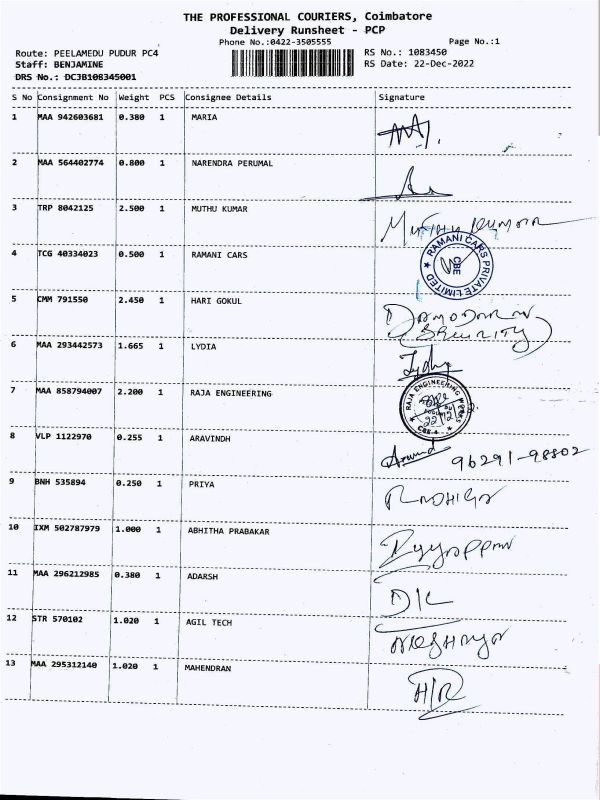 THE PROFESSIONAL COURIERS, Coimbatore
Delivery Runsheet - PCP
Phone No.:0422-3505555 Page No.:1
Route: PEELAMEDU PUDUR PC4 RS No.: 1083450
Staff: BENJAMINE RS Date: 22-Dec-2022
DRS No.: DCJB108345001
S No Consignment No Weight PCS Consignee Details Signature
1 MAA 942603681 0.380 1 MARIA
2 MAA 564402774 0.800 1 NARENDRA PERUMAL
3 TRP 8042125 2.500 1 MUTHU KUMAR
4 TCG 40334023 0.500 1 RAMANI CARS RAMANI CARS PRIVATE LIMITED CBE
5 CMM 791550 2.450 1 HARI GOKUL DAMODARAN
(SECURITY)
6 MAA 293442573 1.665 1 LYDIA Lydia
7 MAA 858794007 2.200 1 RAJA ENGINEERING RAJA ENGINEERING WORKS
8 VLP 1122970 0.255 1 ARAVINDH 96291-98802
9 BNH 535894 0.250 1 PRIYA RADHIGA
10 IXM 502787979 1.000 1 ABHITHA PRABAKAR
11 MAA 296212985 0.380 1 ADARSH
12 STR 570102 1.020 1 AGIL TECH
13 MAA 295312140 1.020 1 MAHENDRAN